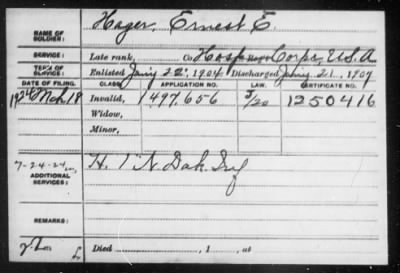 NAME OF SOLDIER: Hager, Ernest E.
SERVICE: Late rank, Co. Hosp Reg't Corps, U.S.A
TERM OF SERVICE: Enlisted Jany 22, 1904 Discharged Jany 21, 1907
DATE OF FILING. CLASS. APPLICATION NO. LAW. CERTIFICATE NO.
1924 Mch 18 Invalid, 1497.656 1250416
Widow,
Minor,
7-24-24 H. 1" N. Dak. Inf
ADDITIONAL SERVICES:
REMARKS:
Died , 1 , at